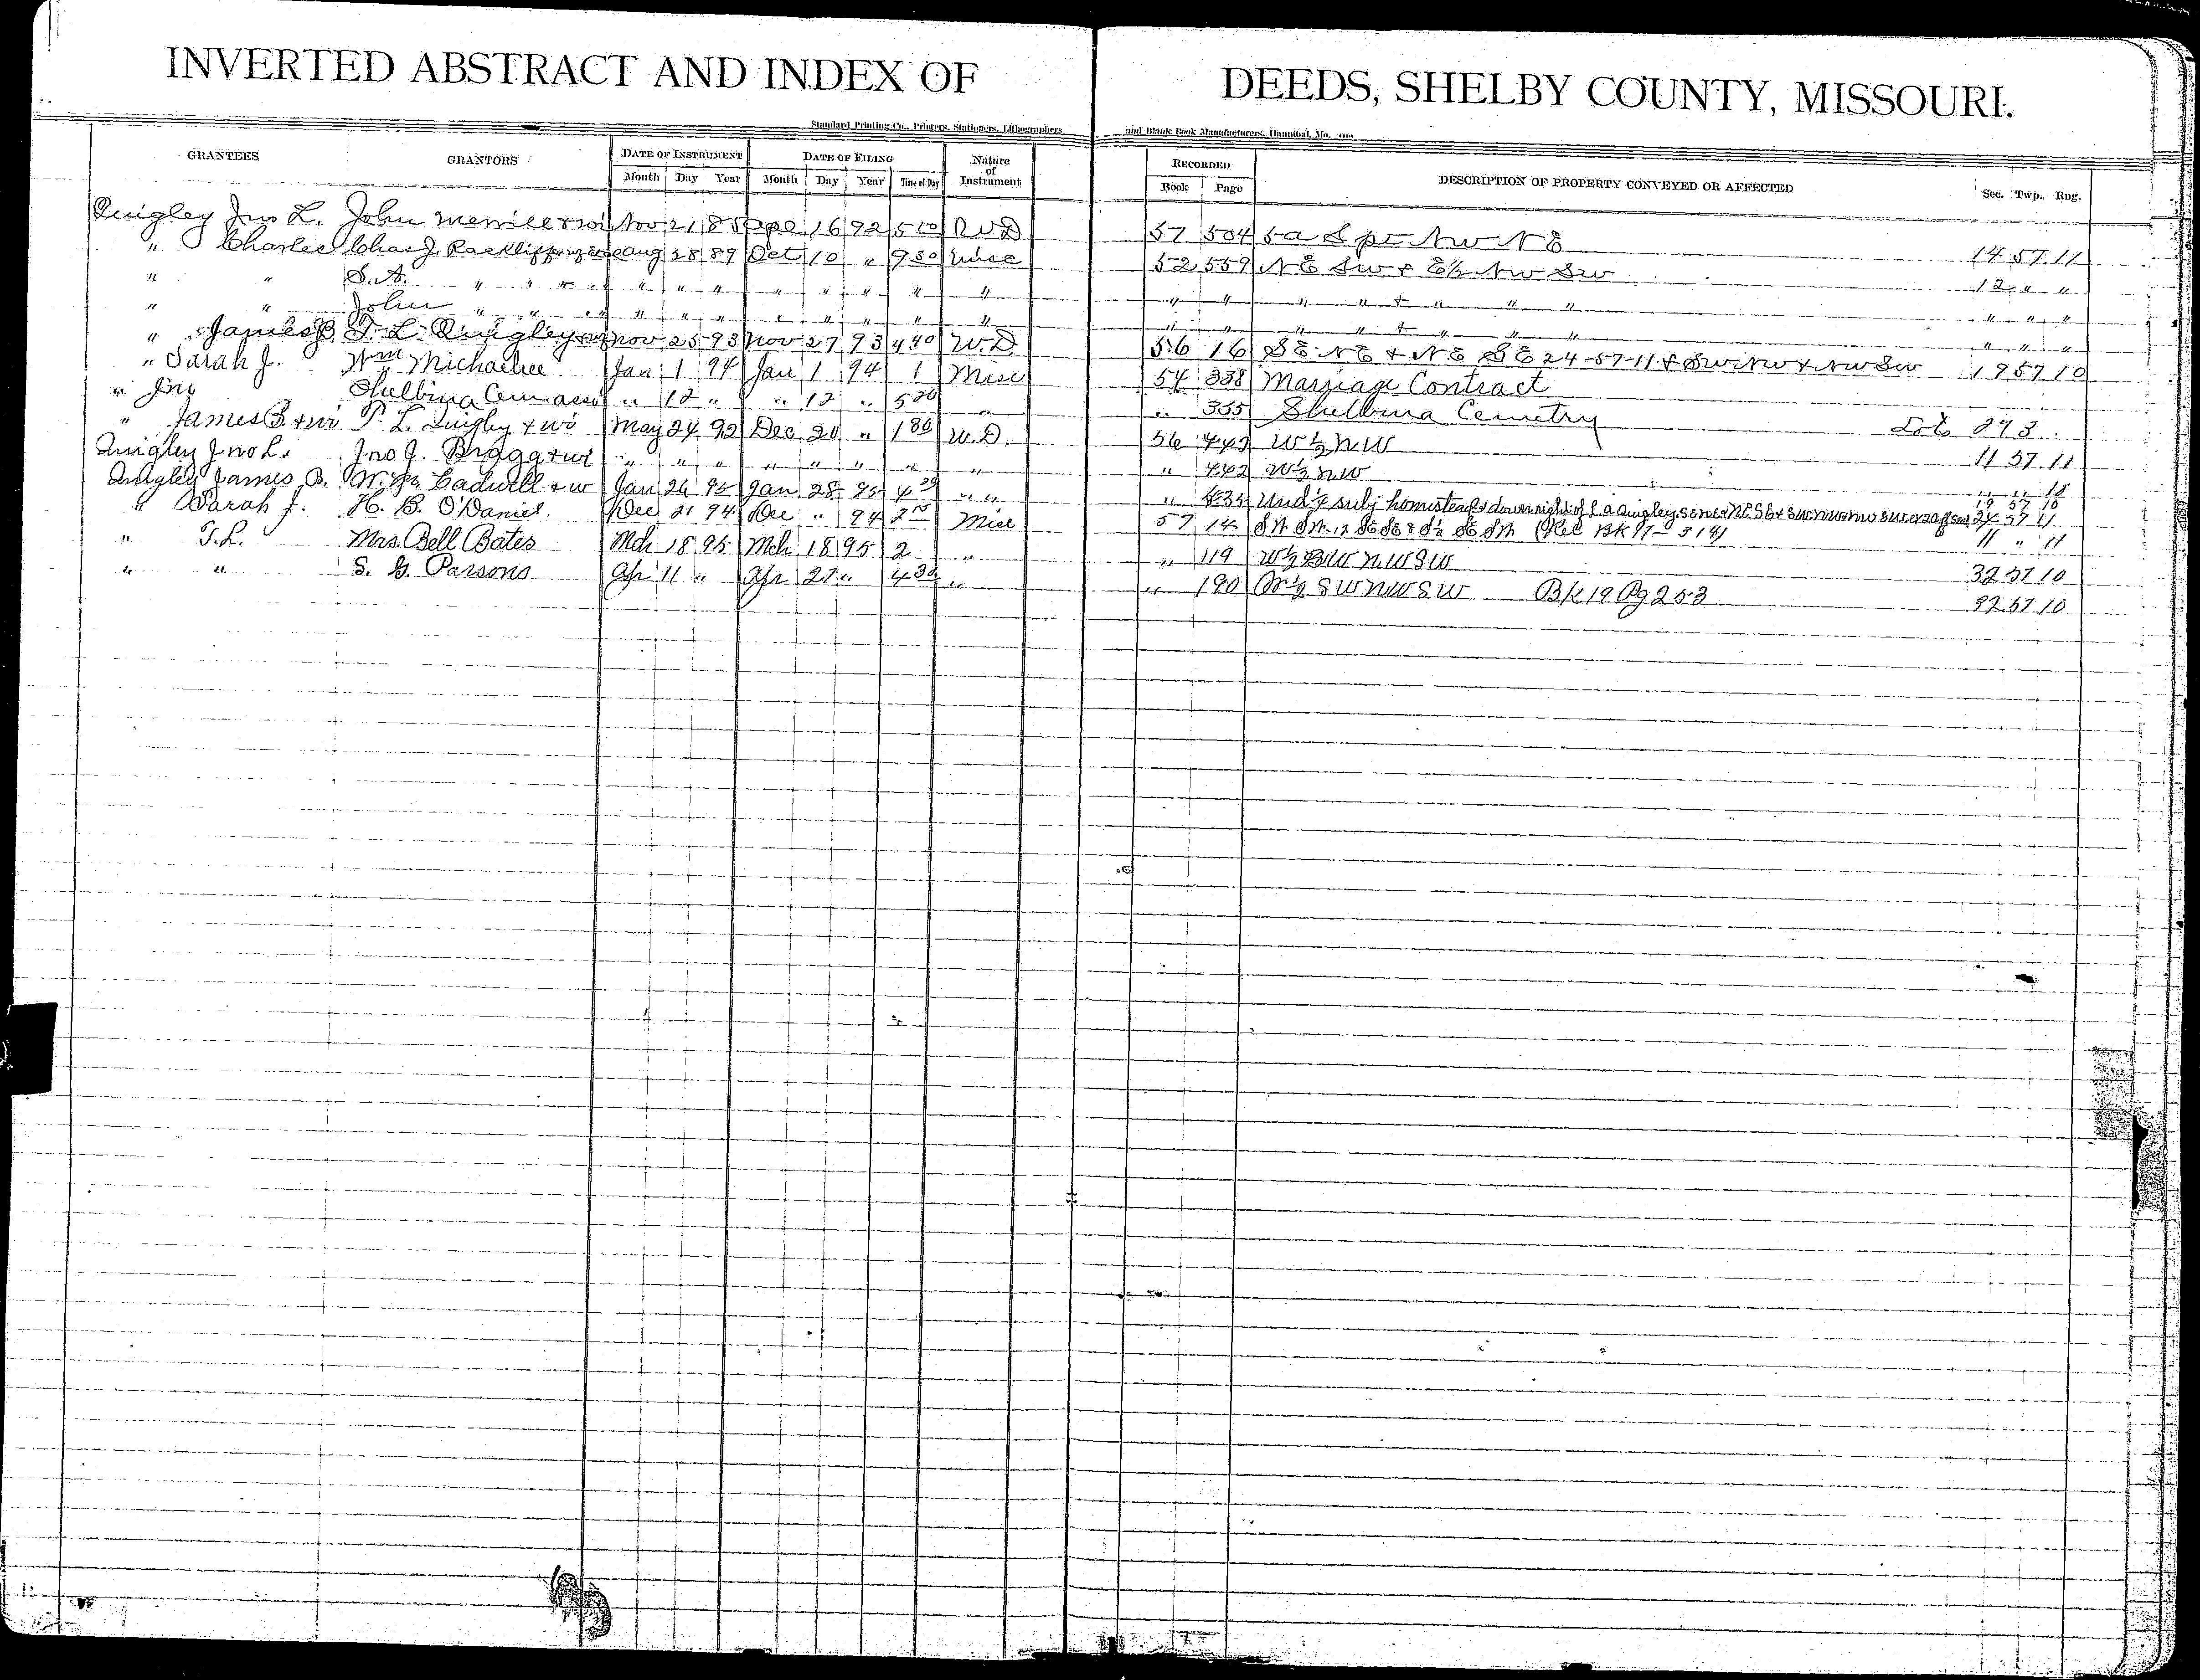 INVERTED ABSTRACT AND INDEX OF DEEDS, SHELBY COUNTY, MISSOURI.
Standard Printing Co., Printers, Stationers, Lithographers and Blank Book Manufacturers, Hannibal, Mo.
GRANTEES GRANTORS DATE OF INSTRUMENT DATE OF FILING Nature of Instrument RECORDED DESCRIPTION OF PROPERTY CONVEYED OR AFFECTED Sec. Twp. Rng.
Month Day Year Month Day Year Time of Day Book Page
Quigley Jno L. John Merrill + wi Nov 21 85 Apl 16 92 5 10 W D 57 504 5 a S pt NW NE 14 57 11
" Charles Chas J. Rackliff Aug 28 89 Oct 10 " 9 30 Misc 52 559 NE SW + E½ NW SW 12 " "
" " S. A. " " " " " " " " " " " " " " " + " " " " " "
" " John " " " " " " " " " " " " " " + " " " " " "
" James B. T. L. Quigley + wi Nov 25 93 Nov 27 93 4 40 W.D 56 16 SE NE + NE SE 24-57-11 + SW NW + NW SW 19 57 10
" Sarah J. Wm Michaelree Jan 1 94 Jan 1 94 1 Misc 54 338 Marriage Contract
" Jno Shelbina Cem asso " 12 " " 12 " 5 20 " " 355 Shelbina Cemetry Lot 273
" James B + wi T. L. Quigley + wi May 24 92 Dec 20 " 1 30 W.D 56 443 W½ NW 11 57 11
Quigley Jno L. Jno J. Bragg + wi " " " " " " " " " 442 W½ NW " " 11
Quigley James B. Cadwell + w Jan 26 95 Jan 28 95 4 30 " " " 435 Und ½ subj homestead & dower right of L. A. Quigley SE NE & NE SE & SW NW & NW SW 19 57 10 24 57 11
" Sarah J. H. B. O'Daniel. Dec 21 94 Dec " 94 2 Misc 57 14 11 " 11
" T.L. Mrs. Bell Bates Mch 18 95 Mch 18 95 2 " " 119 W½ SW NW SW 32 57 10
" " S. G. Parsons Apr 11 " Apr 27 " 4 30 " " 190 W½ SW NW SW Bk 19 Pg 253 32 57 10